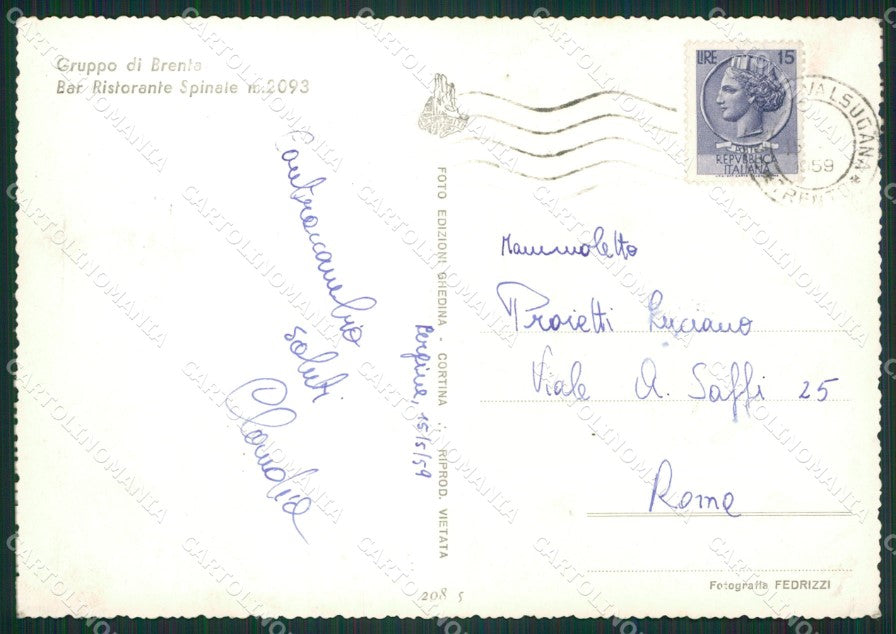 Gruppo di Brenta
Bar Ristorante Spinale m.2093
Contraccambio
saluti
Claudia
Pergine, 15/5/59
FOTO EDIZIONI GHEDINA - CORTINA .·. RIPROD. VIETATA
208 s
LIRE 15
POSTE
REPVBBLICA
ITALIANA
VALSUGANA
59
TRENTO
Mammoletto
Proietti Luciano
Viale A. Saffi 25
Roma
Fotografia FEDRIZZI
CARTOLINOMANIA